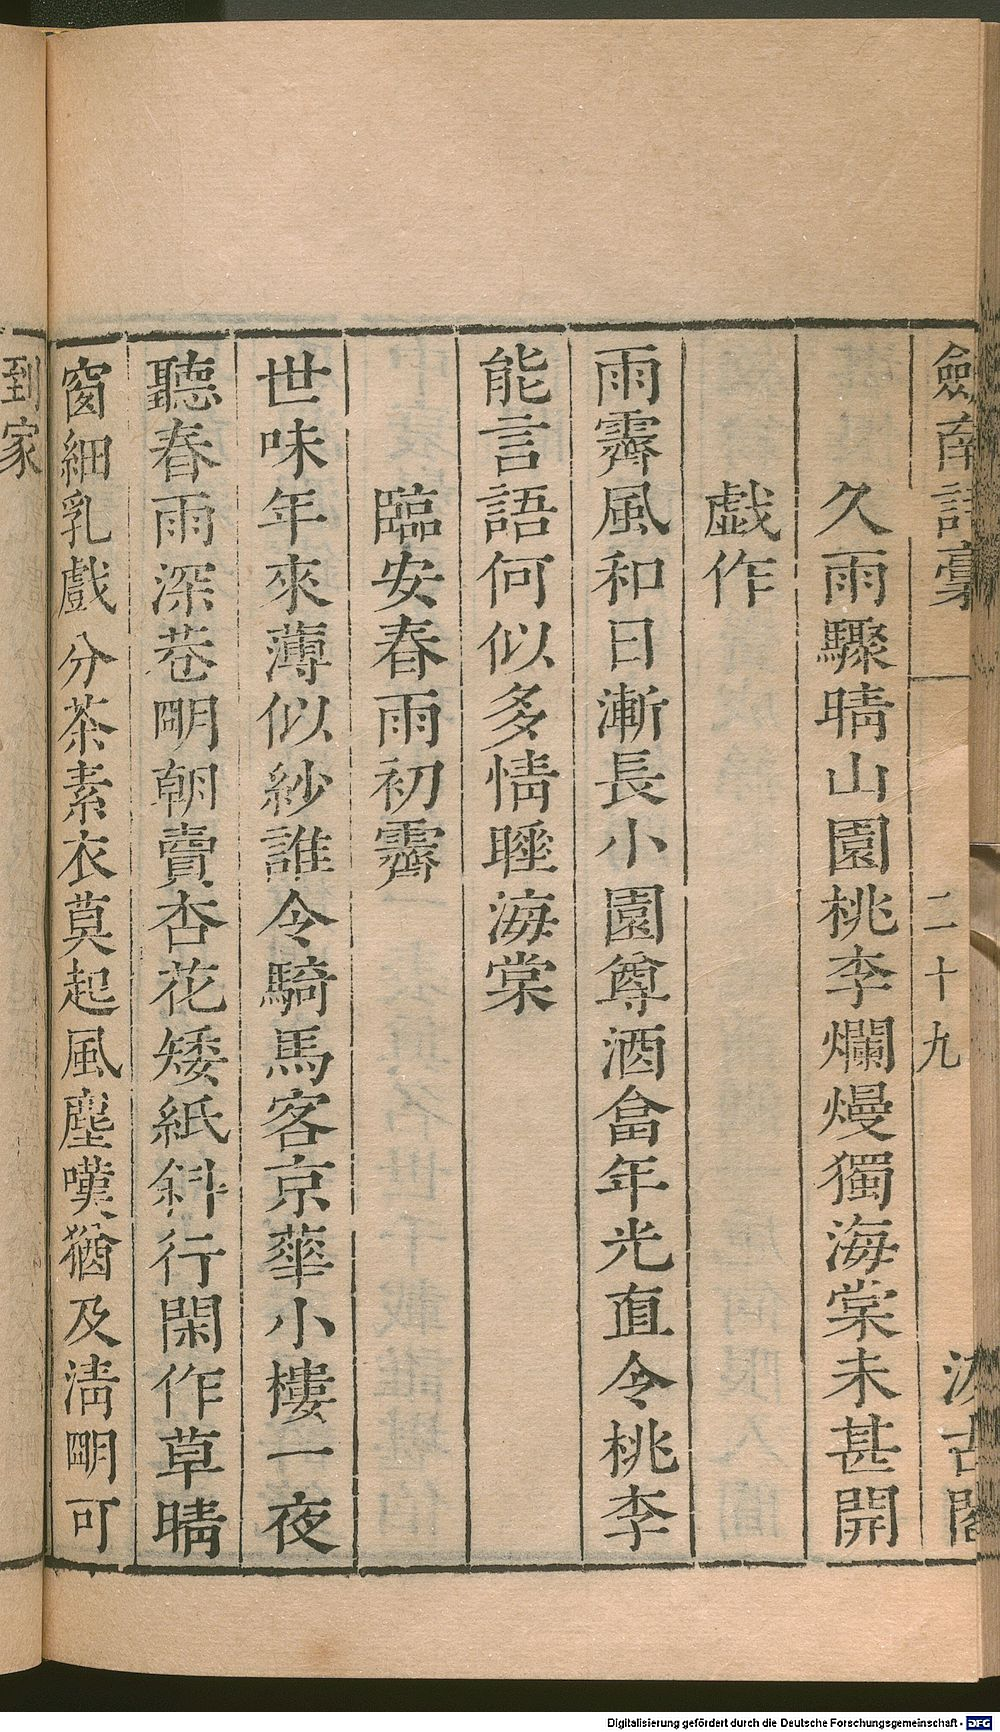 劍南詩稾 二十九 汲古閣
久雨驟晴山園桃李爛熳獨海棠未甚開
戯作
雨霽風和日漸長小園尊酒畣年光直令桃李
能言語何似多情睡海棠
臨安春雨初霽
世味年來薄似紗誰令騎馬客京華小樓一夜
聽春雨深巷朙朝賣杏花矮紙斜行閑作草晴
窗細乳戲分茶素衣莫起風塵嘆猶及淸朙可
到家
Digitalisierung gefördert durch die Deutsche Forschungsgemeinschaft - DFG